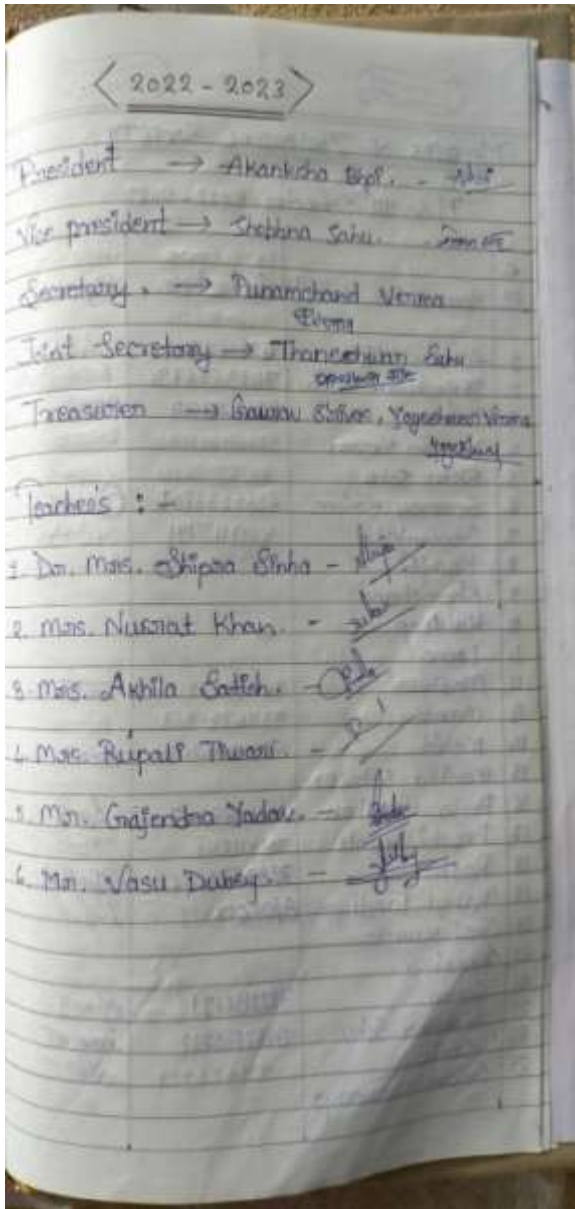 < 2022 - 2023 >
President → Akanksha
Vice president → Shobhna Sahu.
Secretary. → Punamchand Verma
Joint Secretary → Thaneshwari Sahu
Treasurer → Gaurav Yogeshwari Verma
Teacher's : -
1. Dr. Mrs. Shipra Sinha -
2. Mrs. Nusrat Khan. -
3. Mrs. Akhila Satish. -
4. Mrs. Rupali Tiwari. -
5. Mr. Gajendra Yadav. -
6. Mr. Vasu Dubey. -